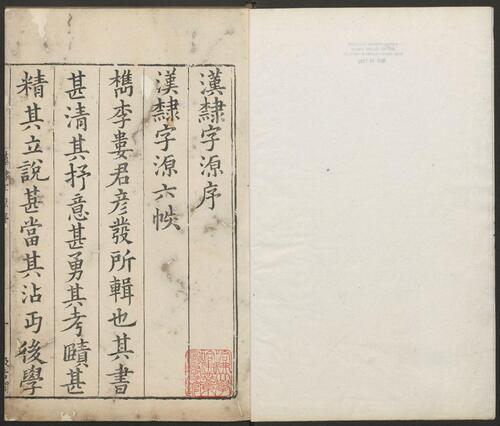 漢隸字源序
漢隸字源六帙
檇李婁君彦發所輯也其書
甚清其抒意甚勇其考賾甚
精其立說甚當其沾丐後學